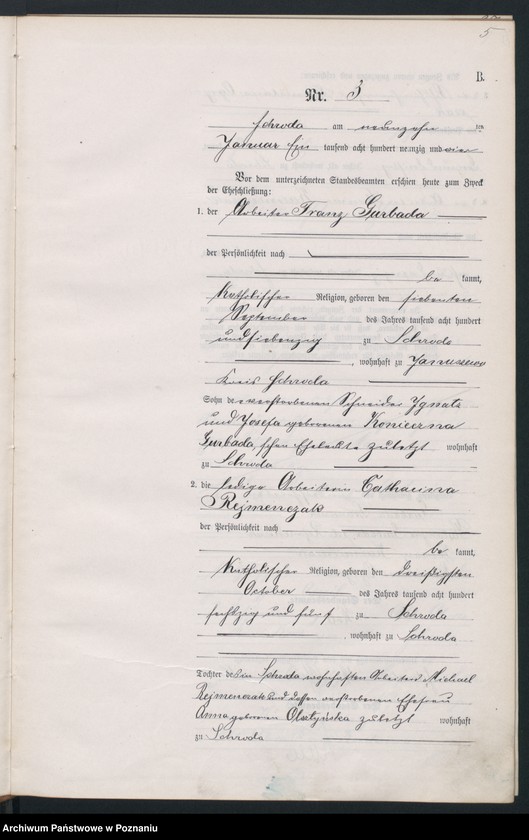 5
B.
Nr. 3
Schroda am neunzehn ten
Januar Ein tausend acht hundert neunzig und vier
Vor dem unterzeichneten Standesbeamten erschien heute zum Zweck
der Eheschließung:
1. der Arbeiter Franz Gurbada
der Persönlichkeit nach
be kannt,
katholischer Religion, geboren den siebenten
September des Jahres tausend acht hundert
und siebenzig zu Schroda
, wohnhaft zu
Kreis Schroda
Sohn des verstorbenen Schneider Ignatz
und Josefa geborenen Konieczna
Gurbada'schen Eheleute zuletzt wohnhaft
zu Schroda
2. die ledige Arbeiterin Catharina
Rejmenczak
der Persönlichkeit nach
be kannt,
katholischer Religion, geboren den dreißigsten
October des Jahres tausend acht hundert
sechszig und fünf zu Schroda
, wohnhaft zu Schroda
Tochter des in Schroda wohnhaften Arbeiters Michael
Rejmenczak und dessen verstorbenen Ehefrau
Anna geborenen Olstyńska zuletzt wohnhaft
zu Schroda
Archiwum Państwowe w Poznaniu